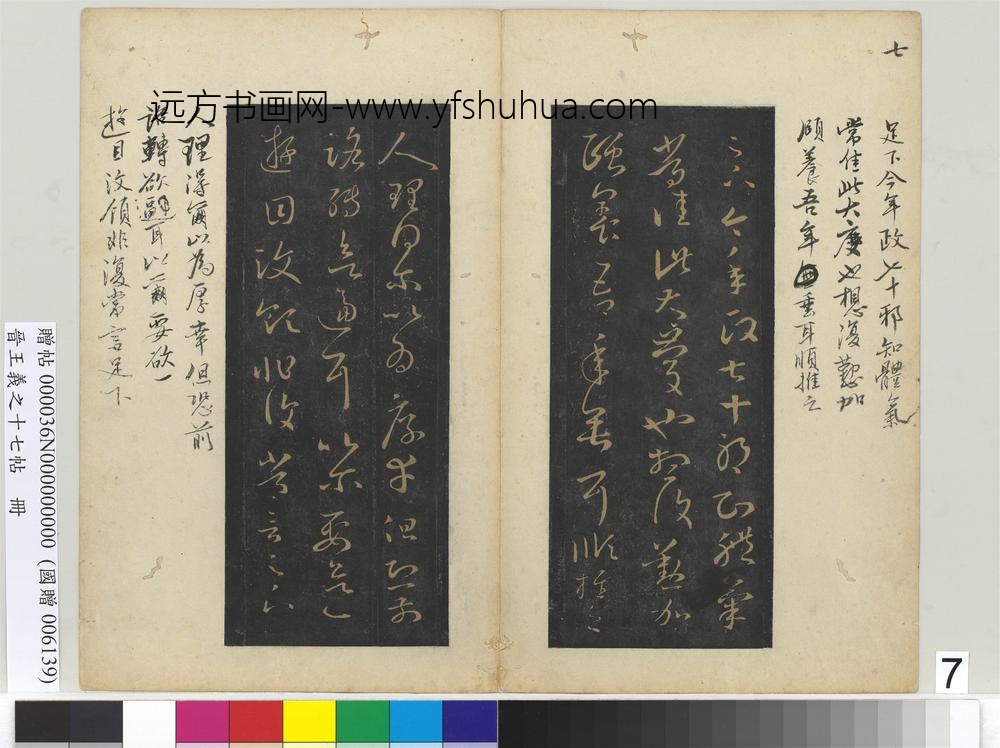 七
足下今年政七十邪知體氣
常佳此大慶也想復懃加
頤養吾年垂耳順推之
足下今年政七十耶知體氣
常佳此大慶也想復懃加
頤養吾年垂耳順推之
人理得爾以為厚幸但恐前
路轉欲逼耳以爾要欲一
遊目汶領非復常言足下
人理得爾以為厚幸但恐前
路轉欲逼耳以爾要欲一
遊目汶領非復常言足下
远方书画网-www.yfshuhua.com
贈帖 000036N000000000 (國贈 006139)
晉王羲之十七帖 冊
7